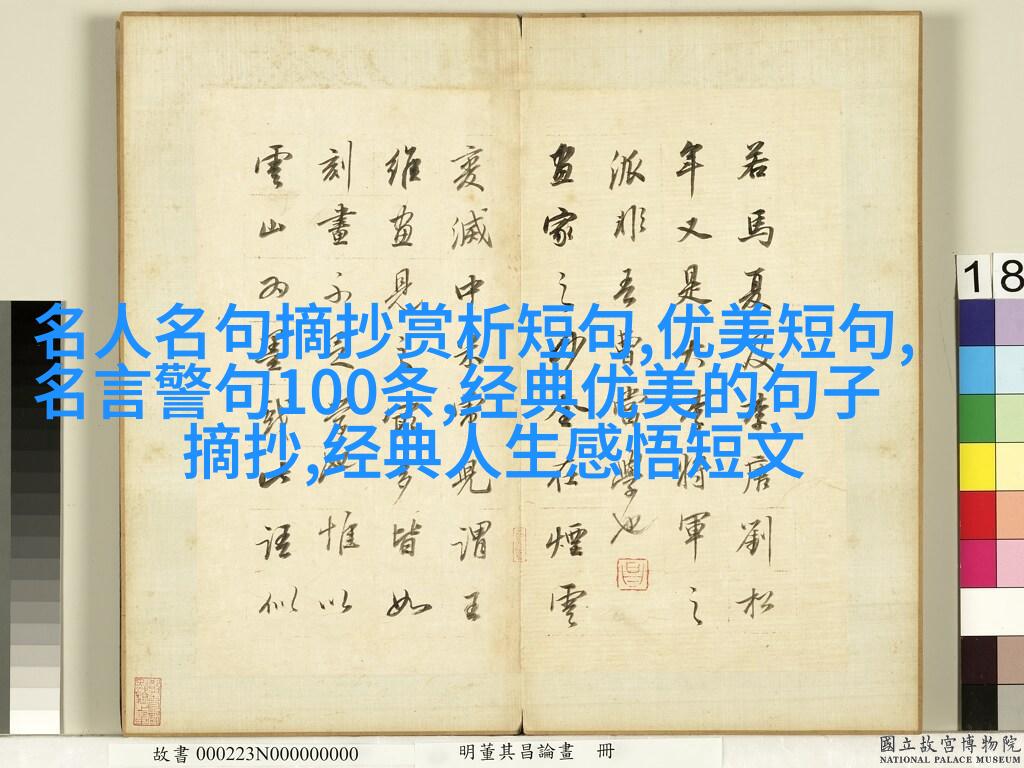 若馬夏及李唐劉松
年又是大李將軍之
派非吾曹當學也
畫家之妙全在煙雲
變滅中米虎兒謂王
維畫見之最多皆如
刻畫不足學也惟以
雲山為墨戲此語似
名人名句摘抄赏析短句,优美短句,
名言警句100条,经典优美的句子
摘抄,经典人生感悟短文
18
故書 000223N000000000
明董其昌論畫 冊
國立故宮博物院
NATIONAL PALACE MUSEUM